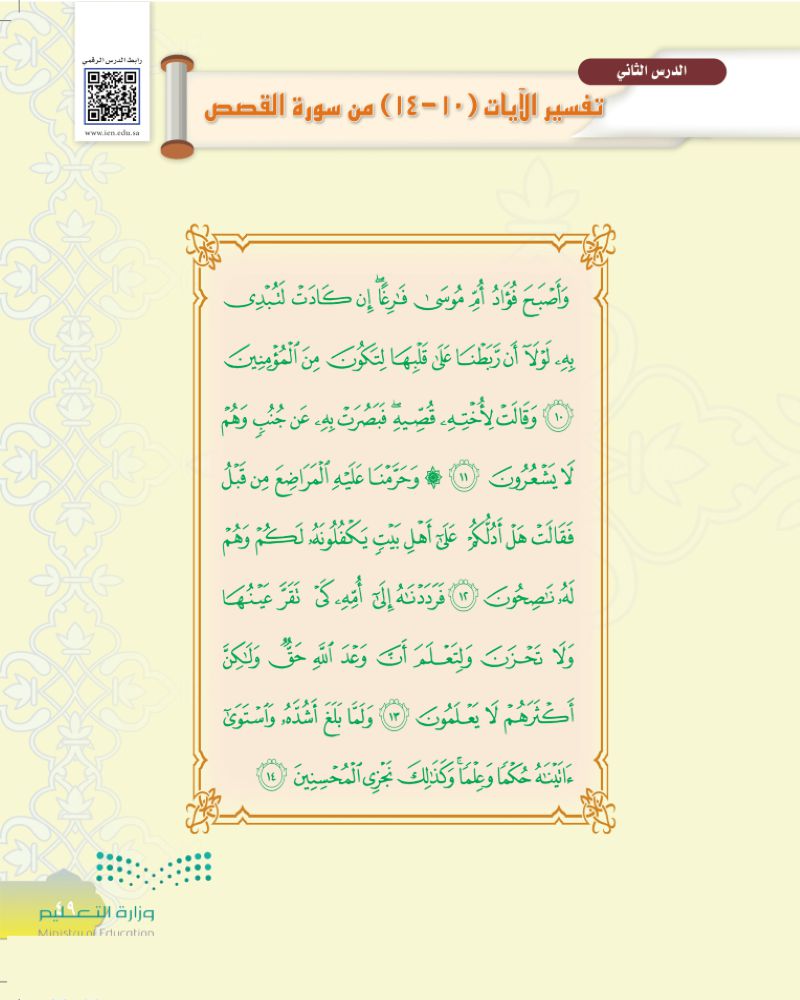 رابط الدرس الرقمي
www.ien.edu.sa
الدرس الثاني
تفسير الآيات (١٠-١٤) من سورة القصص
وَأَصْبَحَ فُؤَادُ أُمِّ مُوسَىٰ فَٰرِغًاۖ إِن كَادَتْ لَتُبْدِى
بِهِۦ لَوْلَآ أَن رَّبَطْنَا عَلَىٰ قَلْبِهَا لِتَكُونَ مِنَ ٱلْمُؤْمِنِينَ
١٠ وَقَالَتْ لِأُخْتِهِۦ قُصِّيهِۖ فَبَصُرَتْ بِهِۦ عَن جُنُبٍ وَهُمْ
لَا يَشْعُرُونَ ١١ ۞ وَحَرَّمْنَا عَلَيْهِ ٱلْمَرَاضِعَ مِن قَبْلُ
فَقَالَتْ هَلْ أَدُلُّكُمْ عَلَىٰٓ أَهْلِ بَيْتٍ يَكْفُلُونَهُۥ لَكُمْ وَهُمْ
لَهُۥ نَٰصِحُونَ ١٢ فَرَدَدْنَٰهُ إِلَىٰٓ أُمِّهِۦ كَىْ تَقَرَّ عَيْنُهَا
وَلَا تَحْزَنَ وَلِتَعْلَمَ أَنَّ وَعْدَ ٱللَّهِ حَقٌّ وَلَٰكِنَّ
أَكْثَرَهُمْ لَا يَعْلَمُونَ ١٣ وَلَمَّا بَلَغَ أَشُدَّهُۥ وَٱسْتَوَىٰٓ
ءَاتَيْنَٰهُ حُكْمًا وَعِلْمًاۚ وَكَذَٰلِكَ نَجْزِى ٱلْمُحْسِنِينَ ١٤
وزارة التعليم
Ministry of Education
٤٩